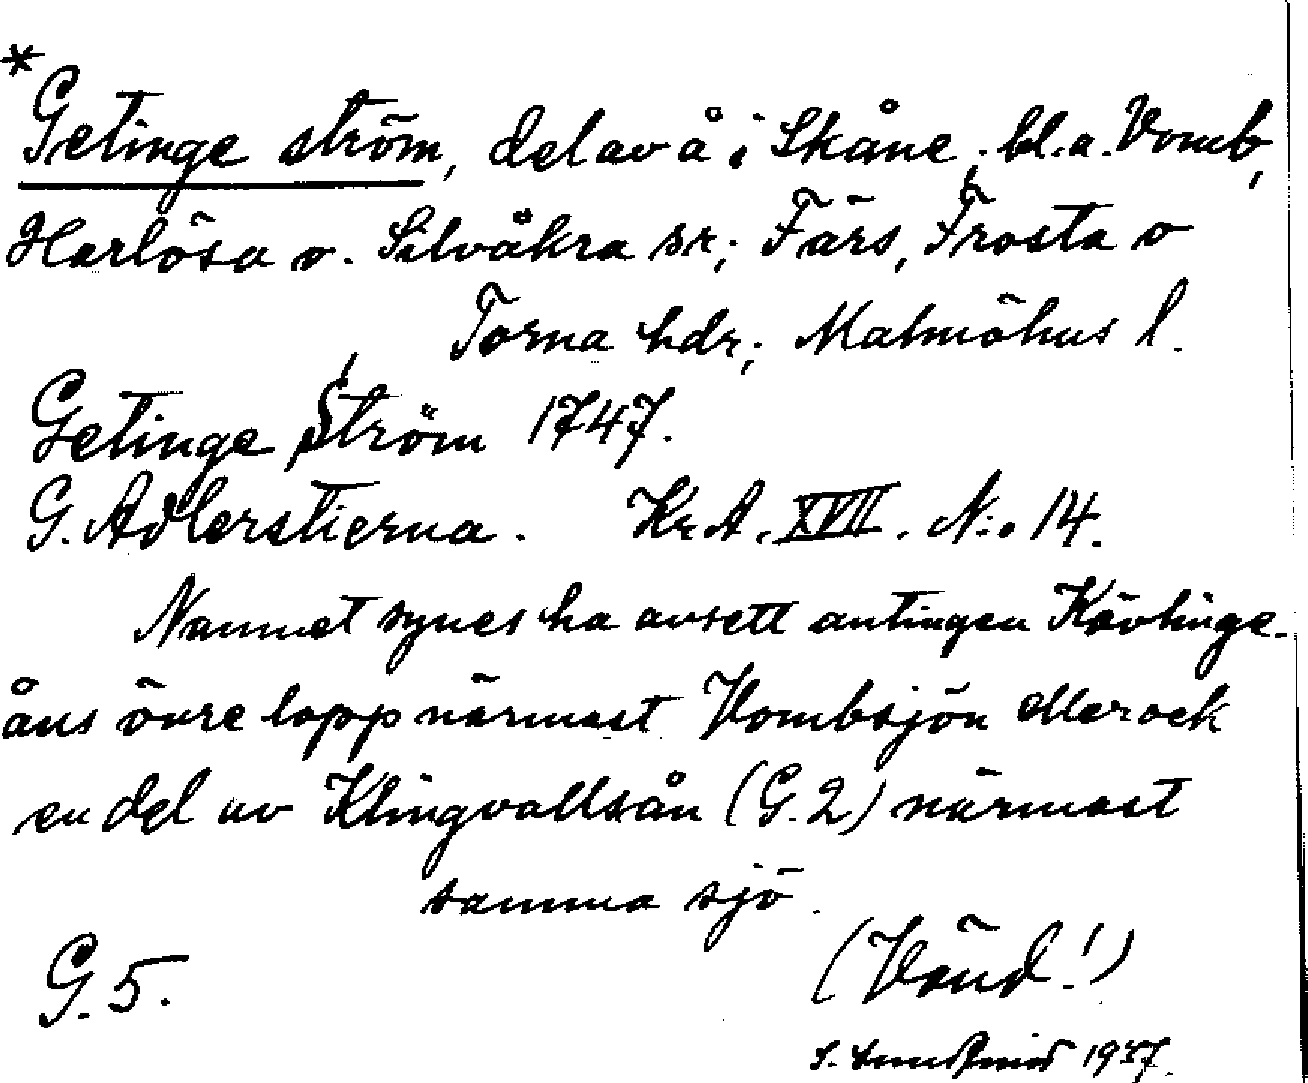 *
Getinge ström, del av å i Skåne; bl.a. Vomb,
Harlösa o. Silvåkra sr; Färs, Frosta o
Torna hdr; Malmöhus l.
Getinge Ström 1747.
G. Adlerstierna. Kr.A. XVII. N:o 14.
Namnet synes ha avsett antingen Kävlinge-
åns övre lopp närmast Vombsjön eller ock
en del av Klingvallsån (G.2) närmast
samma sjö.
(Vänd!)
G. 5.
S. 1937.